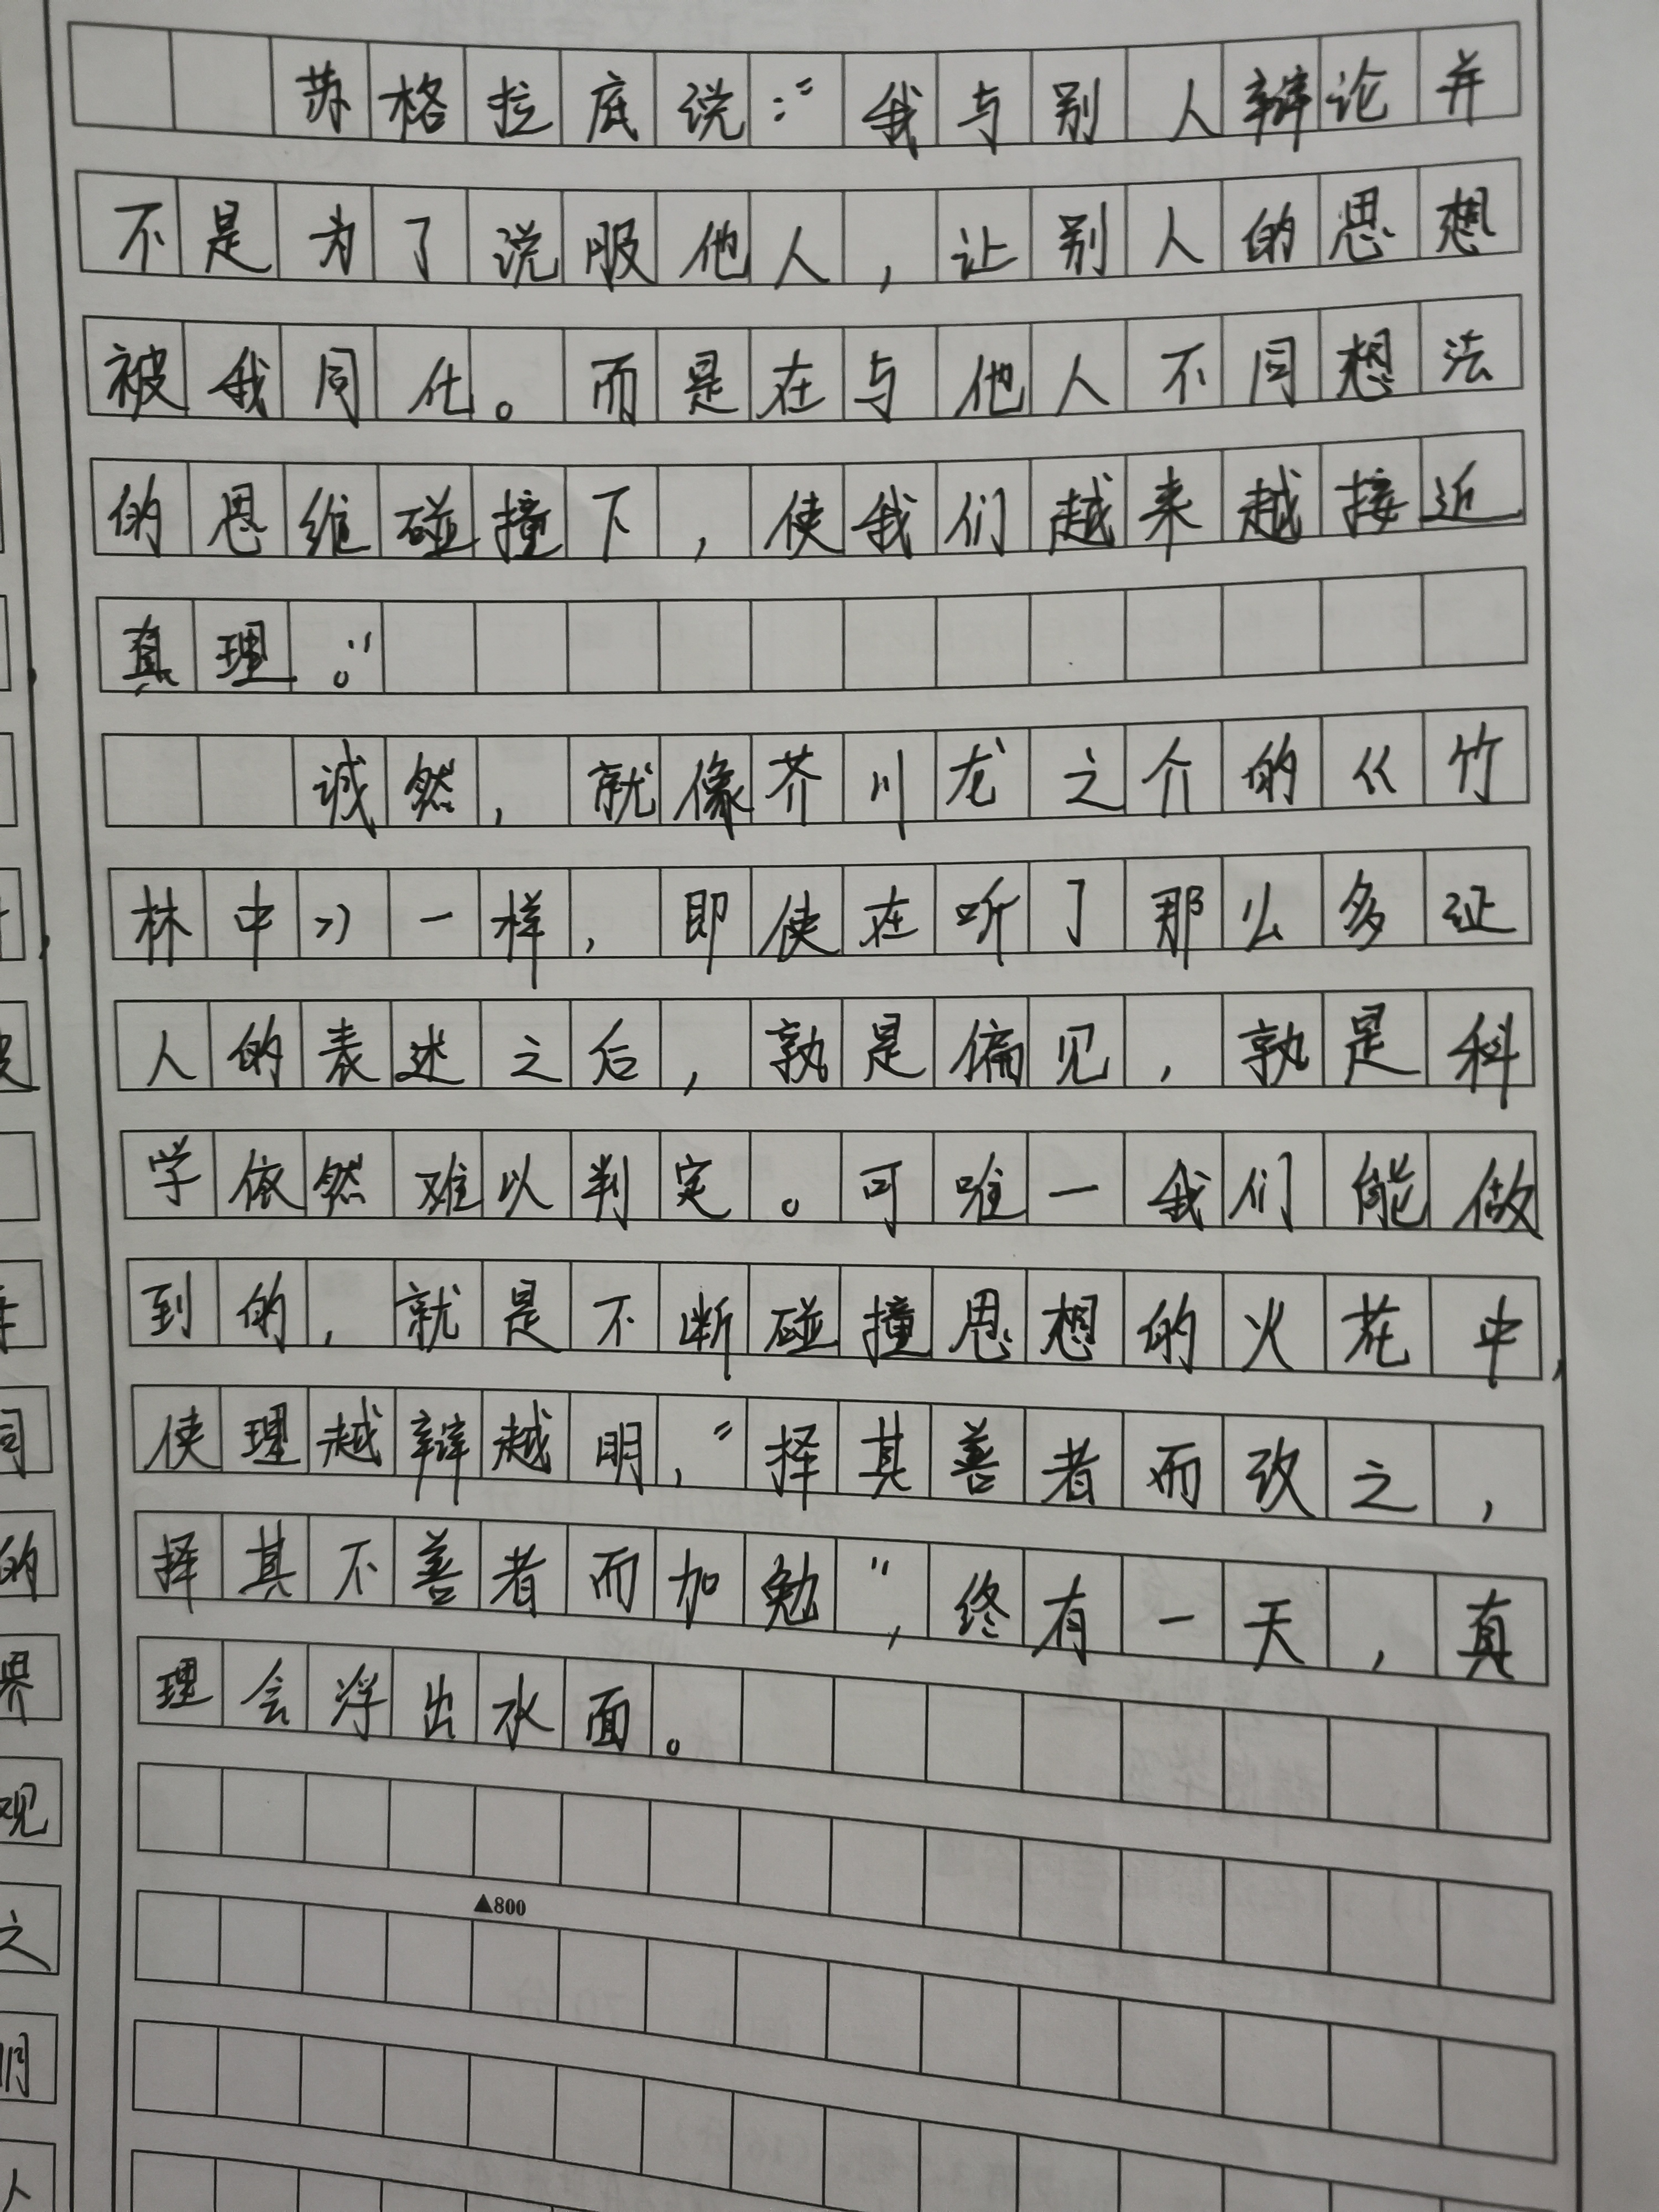 苏格拉底说:“我与别人辩论并
不是为了说服他人,让别人的思想
被我同化。而是在与他人不同想法
的思维碰撞下,使我们越来越接近
真理。”
诚然,就像芥川龙之介的《竹
林中》一样,即使在听了那么多证
人的表述之后,孰是偏见,孰是科
学依然难以判定。可唯一我们能做
到的,就是不断碰撞思想的火花中,
使理越辩越明,“择其善者而改之,
择其不善者而加勉”,终有一天,真
理会浮出水面。
▲800